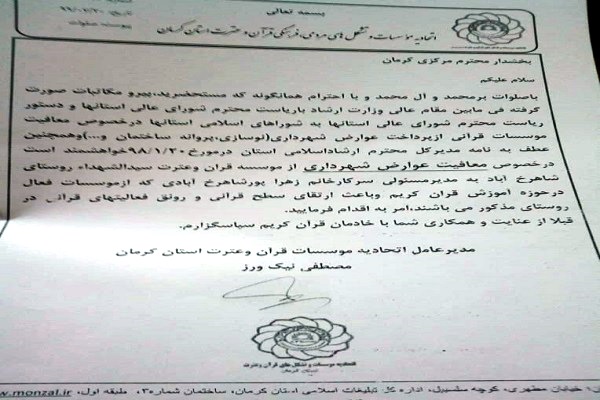 بسمه تعالی
اتحادیه موسسات و تشکل های مردمی، فرهنگی قرآن و عترت استان کرمان
بخشدار محترم مرکزی کرمان
سلام علیکم
باصلوات برمحمد و آل محمد و با احترام همانگونه که مستحضرید،پیرو مکاتبات صورت
گرفته فی مابین مقام عالی وزارت ارشاد باریاست محترم شورای عالی استانها و دستور
ریاست محترم شورای عالی استانها به شوراهای اسلامی استانها درخصوص معافیت
موسسات قرانی ازپرداخت عوارض شهرداری(نوسازی،پروانه ساختمان و...)وهمچنین
عطف به نامه مدیرکل محترم ارشاداسلامی استان درمورخ۹۸/۱/۲۰خواهشمند است
درخصوص معافیت عوارض شهرداری از موسسه قران وعترت سیدالشهداء روستای
شاهرخ آباد به مدیرمسئولی سرکارخانم زهرا پورشاهرخ ابادی که ازموسسات فعال
درحوزه آموزش قران کریم وباعث ارتقای سطح قرانی و رونق فعالیتهای قرانی در
روستای مذکور می باشند،امر به اقدام فرمایید.
قبلا از عنایت و همکاری شما با خادمان قران کریم سپاسگزارم.
مدیرعامل اتحادیه موسسات قرآن وعترت استان کرمان
مصطفی نیک ورز
اتحادیه موسسات و تشکل های قرآن و عترت
استان کرمان
خیابان مطهری، کوچه سلسبیل، اداره کل تبلیغات اسلامی استان کرمان، ساختمان شماره۳، طبقه اول، www.monzal.ir